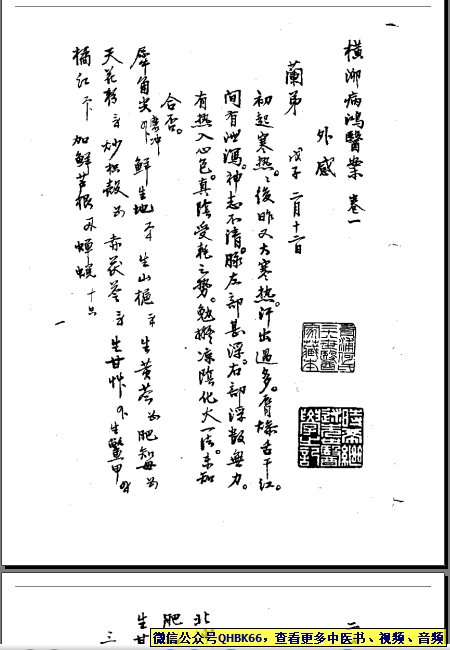 橫泖病鴻醫案 卷一
外感
蘭弟 戊子 二月十二日
初起寒熱。熱後昨又大寒熱。汗出過多。唇燥舌干紅。
間有泄瀉。神志不清。脉左部甚浮。右部浮數無力。
有熱入心包。真陰受耗之勢。勉擬涼陰化火一法。未知
合否。
犀角尖 磨冲 鮮生地 生山梔 生黃芩 肥知母
天花粉 炒枳殼 赤茯苓 生甘草 生鱉甲
橘紅 加鮮芦根 蟬蛻 十只
一
二
北
肥
生甘
三
微信公众号QHBK66，查看更多中医书、视频、音频